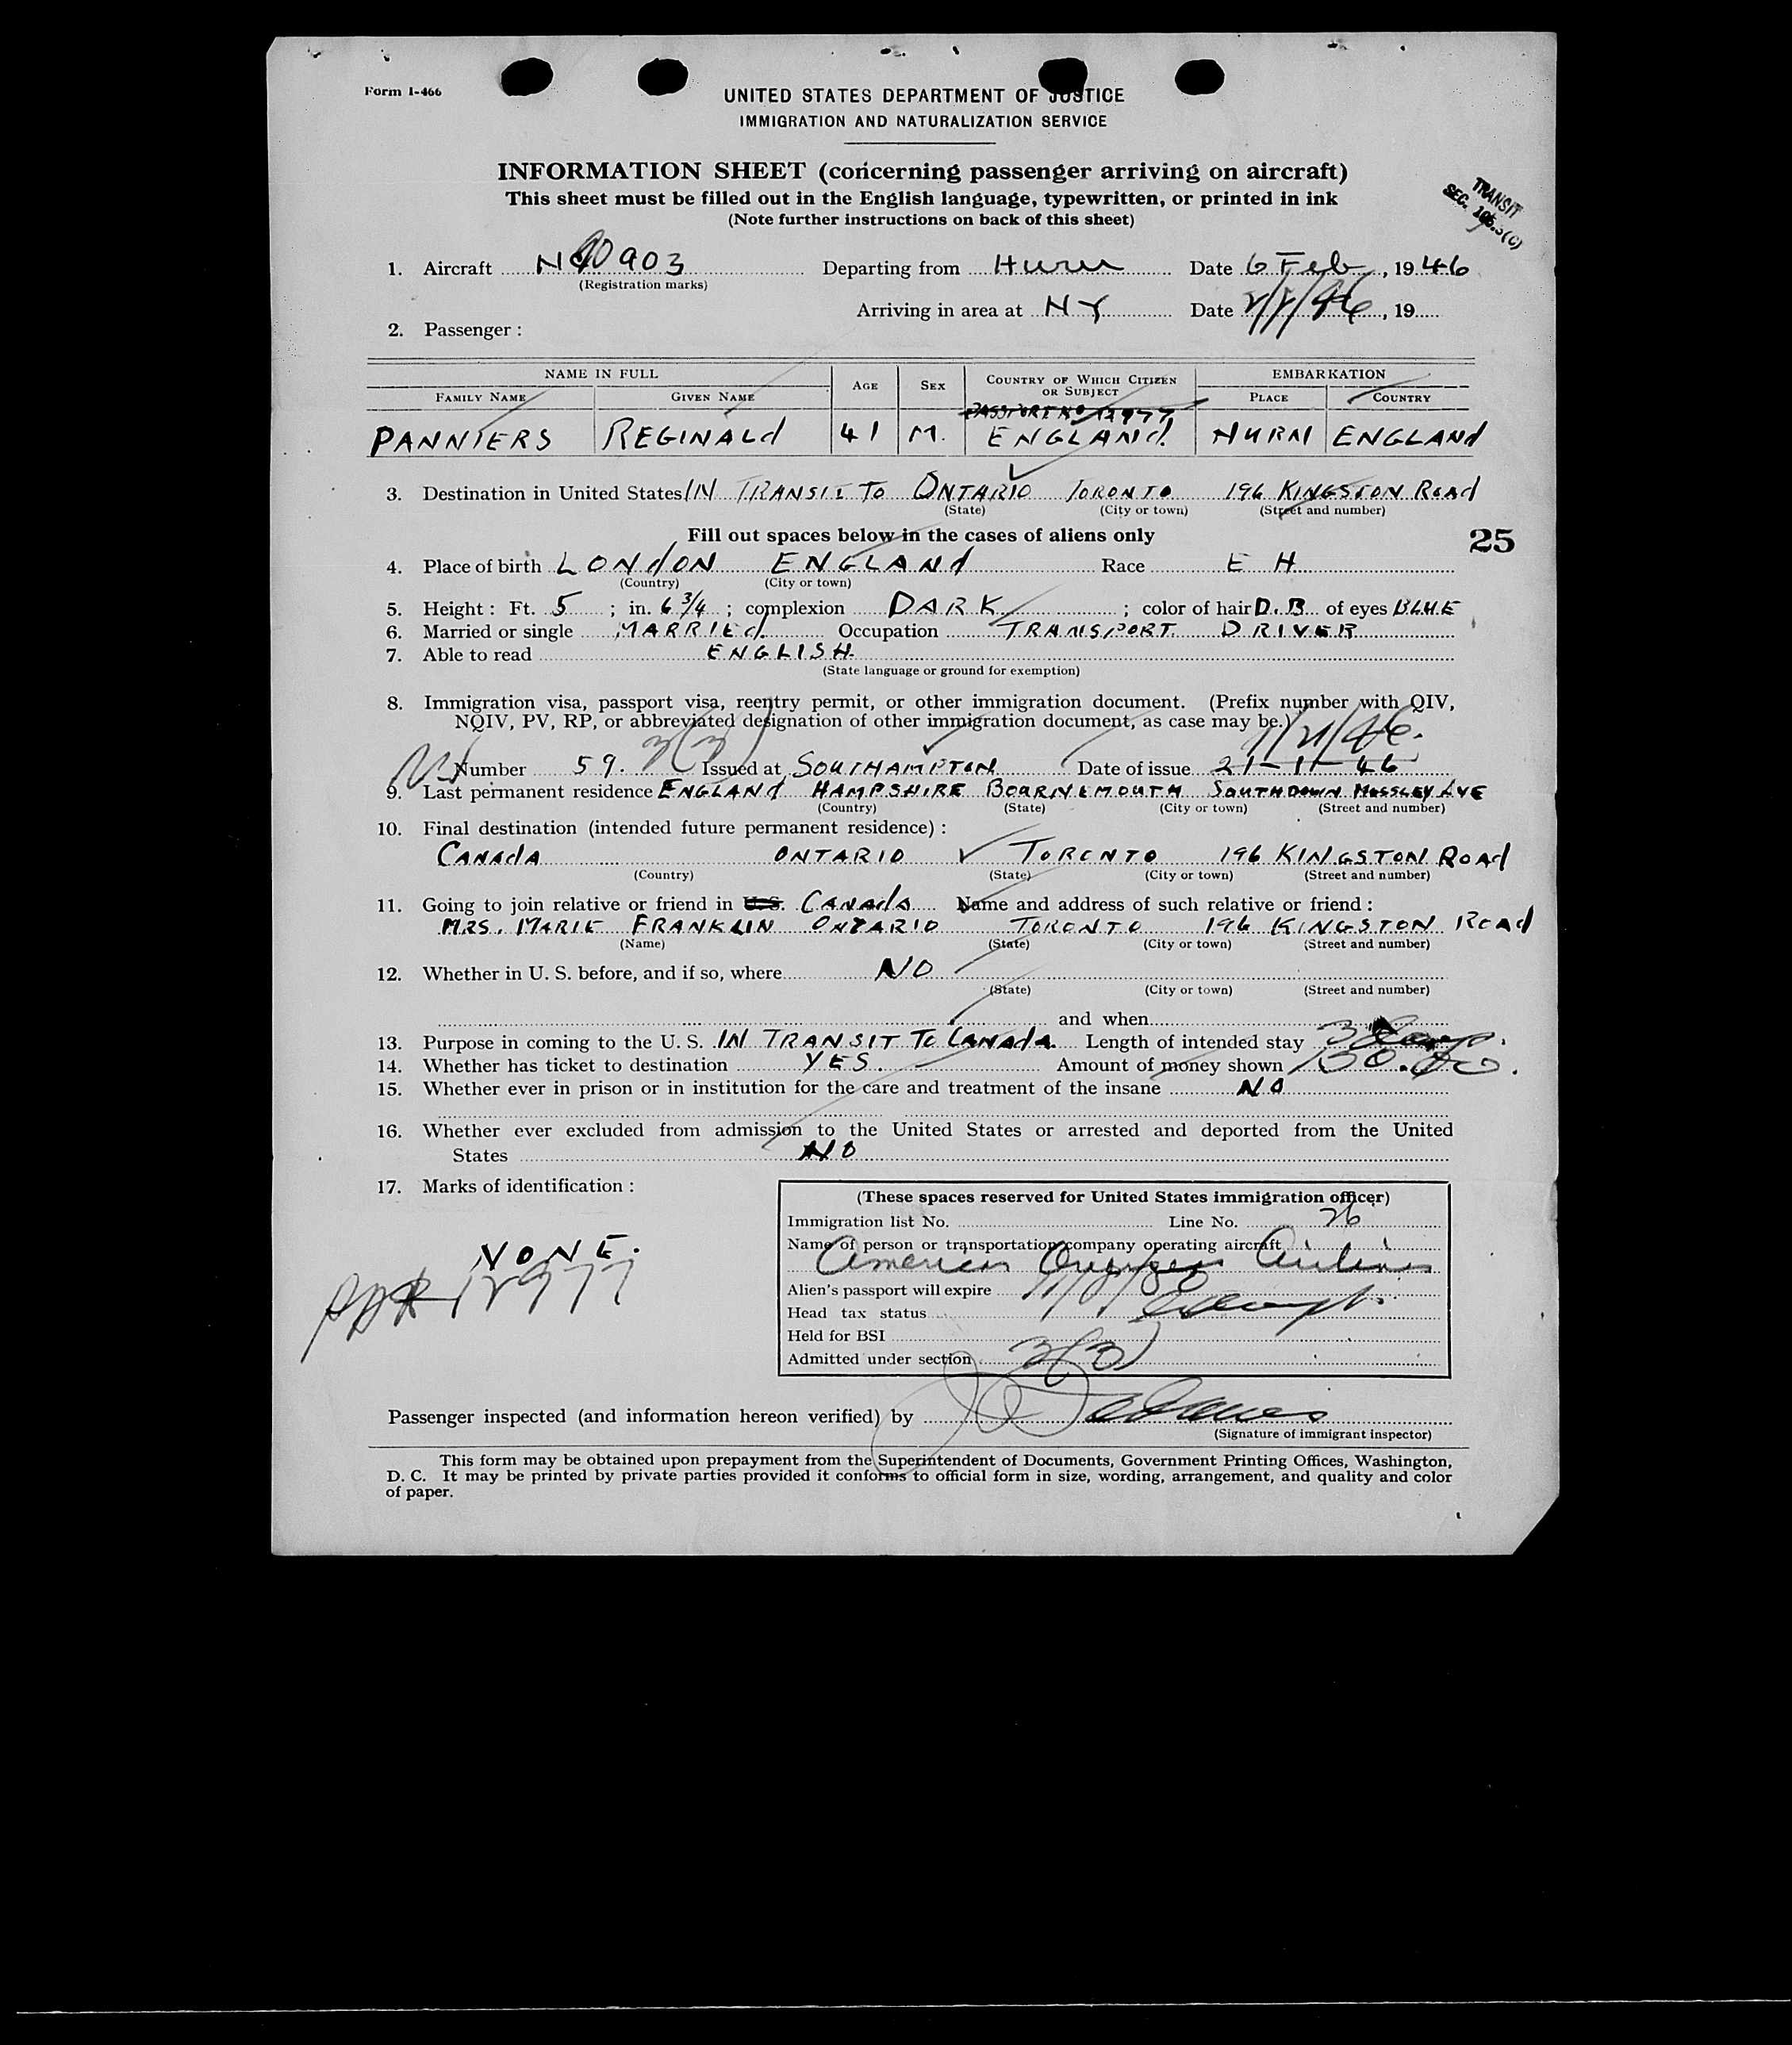 Form I-466
UNITED STATES DEPARTMENT OF JUSTICE
IMMIGRATION AND NATURALIZATION SERVICE
INFORMATION SHEET (concerning passenger arriving on aircraft)
This sheet must be filled out in the English language, typewritten, or printed in ink
(Note further instructions on back of this sheet)
TRANSIT
SEC.
1. Aircraft N90903 Departing from Hurn Date 6 Feb, 1946
(Registration marks)
Arriving in area at NY Date , 19
2. Passenger:
NAME IN FULL AGE SEX COUNTRY OF WHICH CITIZEN OR SUBJECT EMBARKATION
FAMILY NAME GIVEN NAME PLACE COUNTRY
PASSPORT No 12977
PANNIERS REGINALd 41 M. ENGLANd. HURN ENGLANd
3. Destination in United States IN TRANSIT TO ONTARIO TORONTO 196 KINGSTON ROAd
(State) (City or town) (Street and number)
Fill out spaces below in the cases of aliens only
25
4. Place of birth LONdON ENGLANd Race E H
(Country) (City or town)
5. Height: Ft. 5; in. 6 3/4; complexion DARK; color of hair D.B of eyes BLUE
6. Married or single MARRIEd. Occupation TRANSPORT DRIVER
7. Able to read ENGLISH.
(State language or ground for exemption)
8. Immigration visa, passport visa, reentry permit, or other immigration document. (Prefix number with QIV,
NQIV, PV, RP, or abbreviated designation of other immigration document, as case may be.)
3(3) 1/21/46.
Number 59. Issued at SOUTHAMPTON Date of issue 21-1-46
9. Last permanent residence ENGLANd HAMPSHIRE BOURNEMOUTH SOUTHDOWN MOSSLEY AVE
(Country) (State) (City or town) (Street and number)
10. Final destination (intended future permanent residence):
CANAdA ONTARIO TORONTO 196 KINGSTON ROAd
(Country) (State) (City or town) (Street and number)
11. Going to join relative or friend in U.S. CANAdA Name and address of such relative or friend:
MRS. MARIE FRANKLIN ONTARIO TORONTO 196 KINGSTON ROAd
(Name) (State) (City or town) (Street and number)
12. Whether in U. S. before, and if so, where NO
(State) (City or town) (Street and number)
and when
13. Purpose in coming to the U. S. IN TRANSIT TO CANAdA. Length of intended stay 3 days.
14. Whether has ticket to destination YES. Amount of money shown
15. Whether ever in prison or in institution for the care and treatment of the insane NO
16. Whether ever excluded from admission to the United States or arrested and deported from the United
States NO
17. Marks of identification:
NONE.
12977
(These spaces reserved for United States immigration officer)
Immigration list No. Line No. 26
Name of person or transportation company operating aircraft
American Overseas Airlines
Alien's passport will expire
Head tax status Exempt
Held for BSI
Admitted under section 3(3)
Passenger inspected (and information hereon verified) by
(Signature of immigrant inspector)
This form may be obtained upon prepayment from the Superintendent of Documents, Government Printing Offices, Washington,
D. C. It may be printed by private parties provided it conforms to official form in size, wording, arrangement, and quality and color
of paper.